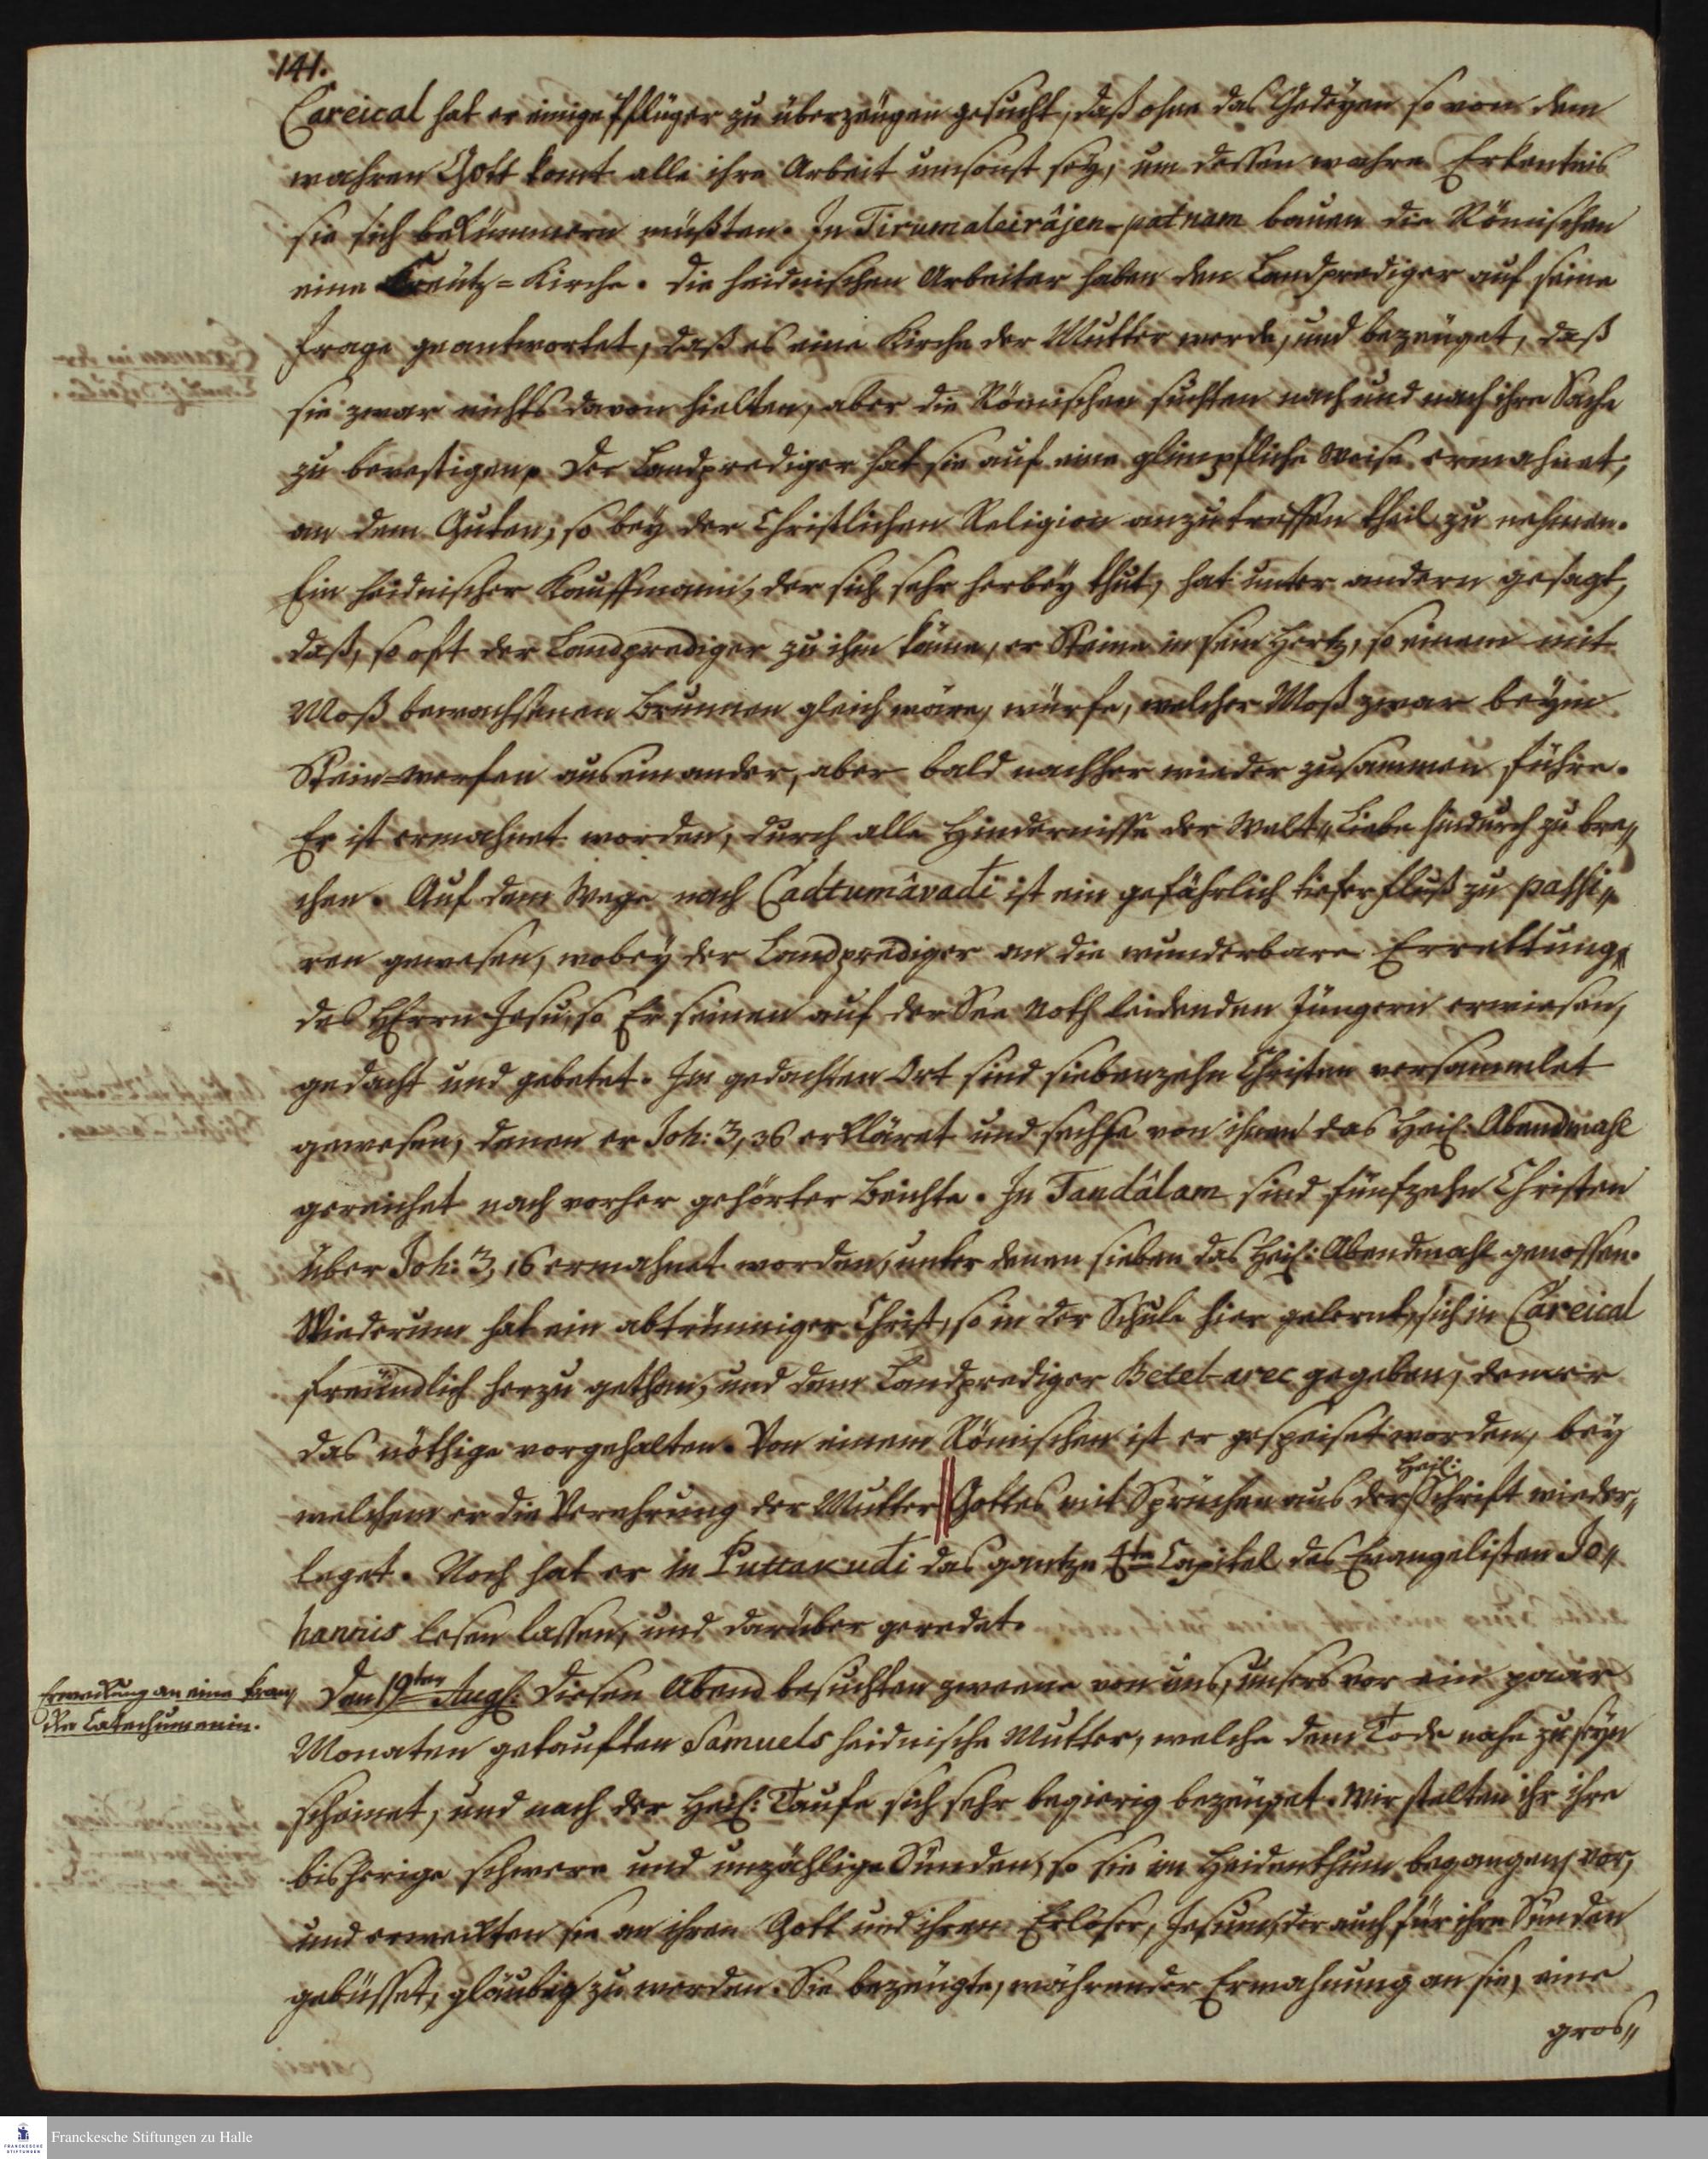 141.
Careical hat er einige Pflüger zu überzeugen gesucht, daß ohne das Gedeyen so von dem
wahren Gott komt alle ihre Arbeit umsonst sey, um dessen wahre Erkentnis
sie sich bekümmern müßten. In Tirumaleirâjen-patnam bauen die Römischen
eine Kreutz-Kirche. Die heidnischen Arbeiter haben den Landprediger auf seine
Frage geantwortet, daß es eine Kirche der Mutter werde, und bezeuget, daß
sie zwar nichts davon hielten, aber die Römischen suchten nach und nach ihre Sache
zu bevestigen. Der Landprediger hat sie auf eine glimpfliche Weise ermahnet,
an dem Guten, so bey der Christlichen Religion anzutreffen theil zu nehmen.
Ein heidnischer Kauffmann, der sich sehr herbey thut, hat unter andern gesagt,
daß, so oft der Landprediger zu ihm käme, er Steine in sein Hertz, so einem mit
Moß bewachsenen Brunnen gleich wäre, würfe, welcher Moß zwar beym
Stein-werfen auseinander, aber bald nachher wieder zusammen führe.
Er ist ermahnet worden, durch alle Hindernisse der Welt-Liebe hindurch zu bre„
chen. Auf dem Wege nach Cadtumâvadi ist ein gefährlich tiefer Fluß zu passi„
ren gewesen, wobey der Landprediger an die wunderbare Errettung
des HErrn Jesu, so Er seinen auf der See Noth leidenden Jüngern erwiesen,
gedacht und gebetet. Im gedachten Ort sind siebenzehn Christen versammlet
gewesen, denen er Joh: 3, 36 erkläret und sechse von ihnen das Heil: Abendmahl
gereichet nach vorher gehörter Beichte. In Tandâlam sind fünfzehn Christen
über Joh: 3, 16 ermahnet worden, unter denen sieben das Heil: Abendmahl genossen.
Wiederum hat ein abtrünniger Christ, so in der Schule hier gelernt, sich in Careical
freundlich herzu gethan, und dem Landprediger Betel-arec gegeben, dem er
das nöthige vorgehalten. Von einem Römischen ist er gespeiset worden, bey
welchem er die Verehrung der Mutter Gottes mit Sprüchen aus der Heil: Schrift wieder„
leget. Noch hat er in Puttakudi das gantze 4te Capitel des Evangelisten Jo„
hannis lesen lassen, und darüber geredet.
Erweckung an eine kran„
cke Catechumenin.
Den 19ten Aug: Diesen Abend besuchten zweene von uns, unsers vor ein paar
Monaten getauften Samuels heidnische Mutter, welche dem Tode nahe zu seyn
scheinet, und nach der Heil: Taufe sich sehr begierig bezeuget. Wir stelten ihr ihre
bisherige schwere und unzählige Sünden, so sie im Heidenthum begangen, vor,
und erweckten sie an ihren Gott und ihren Erlöser, Jesum, der auch für ihre Sünden
gebüsset, gläubig zu werden. Sie bezeugte, währender Ermahnung an sie, eine
gros„
Franckesche Stiftungen zu Halle